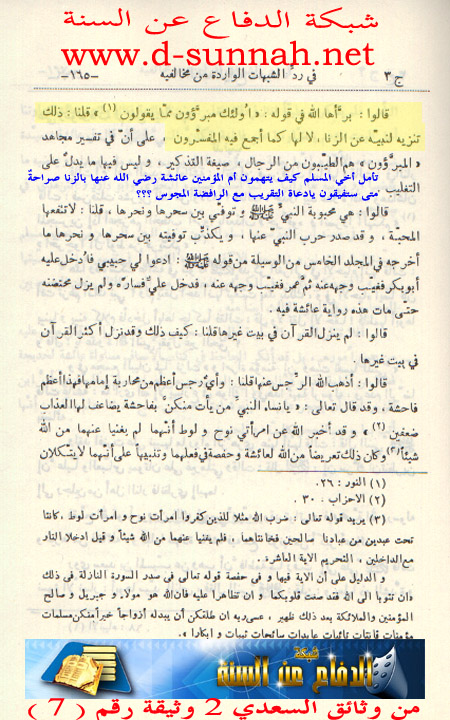 شبكة الدفاع عن السنة
www.d-sunnah.net
ج ٣ في ردّ الشبهات الواردة من مخالفيه -١٦٥-
قالوا : برّأها الله في قوله : « اولئك مبرّؤون ممّا يقولون (١) » قلنا : ذلك
تنزيه لنبيّه عن الزنا ، لا لها كما أجمع فيه المفسّرون ، على أنّ في تفسير مجاهد
« المبرّؤون » هم الطيّبون من الرجال ، صيغة التذكير ، و ليس فيها ما يدلّ على
التغليب
تأمل أخي المسلم كيف يتهمون أم المؤمنين عائشة رضي الله عنها بالزنا صراحة
متى ستفيقون يادعاة التقريب مع الرافضة المجوس ؟؟؟
قالوا : هي محبوبة النبيّ ﷺ و توفّي بين سحرها و نحرها ، قلنا : لا تنفعها
المحبّة ، و قد صدر حرب النبيّ عنها ، و يكذّب توفيته بين سحرها و نحرها ما
أخرجه في المجلد الخامس من الوسيلة من قوله ﷺ : ادعوا لي حبيبي فأدخل عليه
أبوبكر فغيّب وجهه عنه ثمّ عمر فغيّب وجهه عنه ، فدخل عليّ فسارّه ولم يزل محتضنه
حتّى مات هذه رواية عائشة فيه .
قالوا : لم ينزل القرآن في بيت غيرها قلنا : كيف ذلك وقد نزل أكثر القرآن
في بيت غيرها .
قالوا : أذهب الله الرّجس عنها قلنا : وأيّ رجس أعظم من محاربة إمامها فهذا أعظم
فاحشة ، و قد قال تعالى : « يا نساء النبيّ من يأت منكنّ بفاحشة يضاعف لها العذاب
ضعفين (٢) » و قد أخبر الله عن امرأتي نوح و لوط أنّهما لم يغنيا عنهما من الله
شيئاً (٣) و كان ذلك تعريضاً من الله لعائشة و حفصة في فعلهما و تنبيهاً على أنّهما لا يتّكلان
(١) النور : ٢٦ .
(٢) الاحزاب : ٣٠ .
(٣) يريد قوله تعالى : ضرب الله مثلا للذين كفروا امرأت نوح و امرأت لوط ، كانتا
تحت عبدين من عبادنا صالحين فخانتاهما ، فلم يغنيا عنهما من الله شيئاً و قيل ادخلا النار
مع الداخلين ، التحريم الاية العاشرة .
و الدليل على أن الاية فيها و في حفصة قوله تعالى في صدر السورة النازلة في ذلك
«ان تتوبا الى الله فقد صغت قلوبكما و ان تظاهرا عليه فان الله هو مولاه و جبريل و صالح
المؤمنين والملائكة بعد ذلك ظهير ، عسى ربه ان طلقكن أن يبدله أزواجاً خيراً منكن مسلمات
مؤمنات قانتات تائبات عابدات سائحات ثيبات و ابكارا » .
شبكة
الدفاع عن السنة
من وثائق السعدي 2 وثيقة رقم ( 7 )